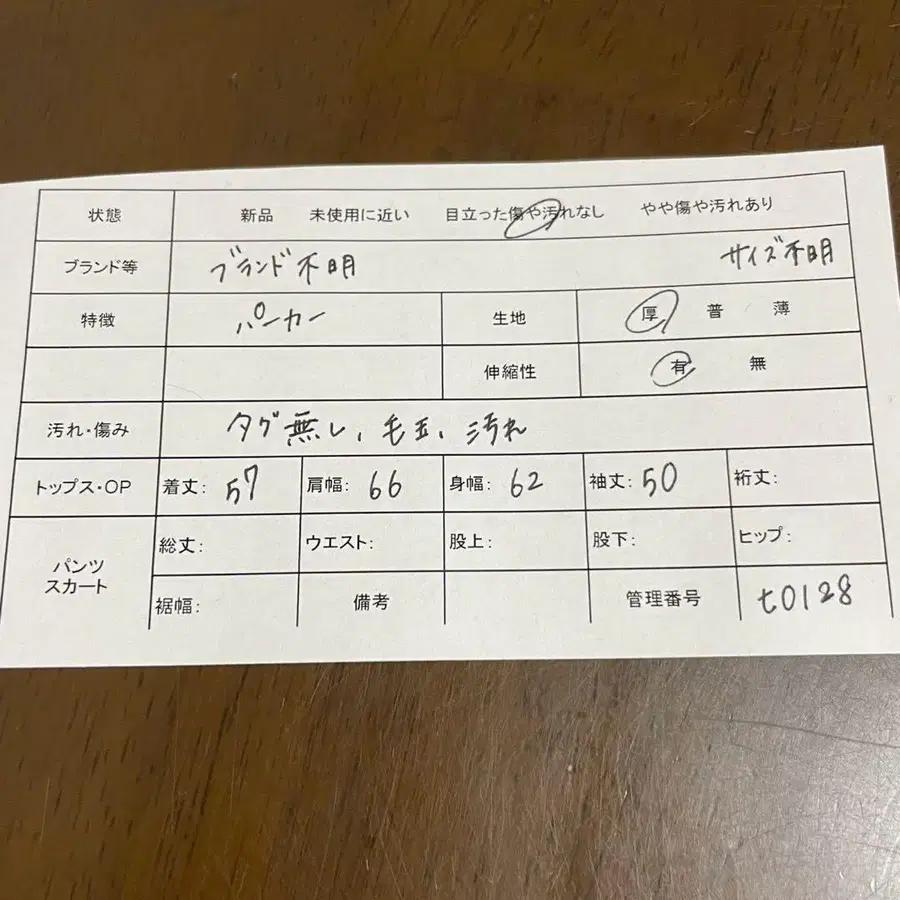 状態 新品 未使用に近い 目立った傷や汚れなし やや傷や汚れあり
ブランド等 ブランド不明 サイズ不明
特徴 パーカー 生地 厚 普 薄
伸縮性 有 無
汚れ・傷み タグ無し、毛玉、汚れ
トップス・OP 着丈: 57 肩幅: 66 身幅: 62 袖丈: 50 裄丈:
パンツ スカート 総丈: ウエスト: 股上: 股下: ヒップ:
裾幅: 備考 管理番号 t0128